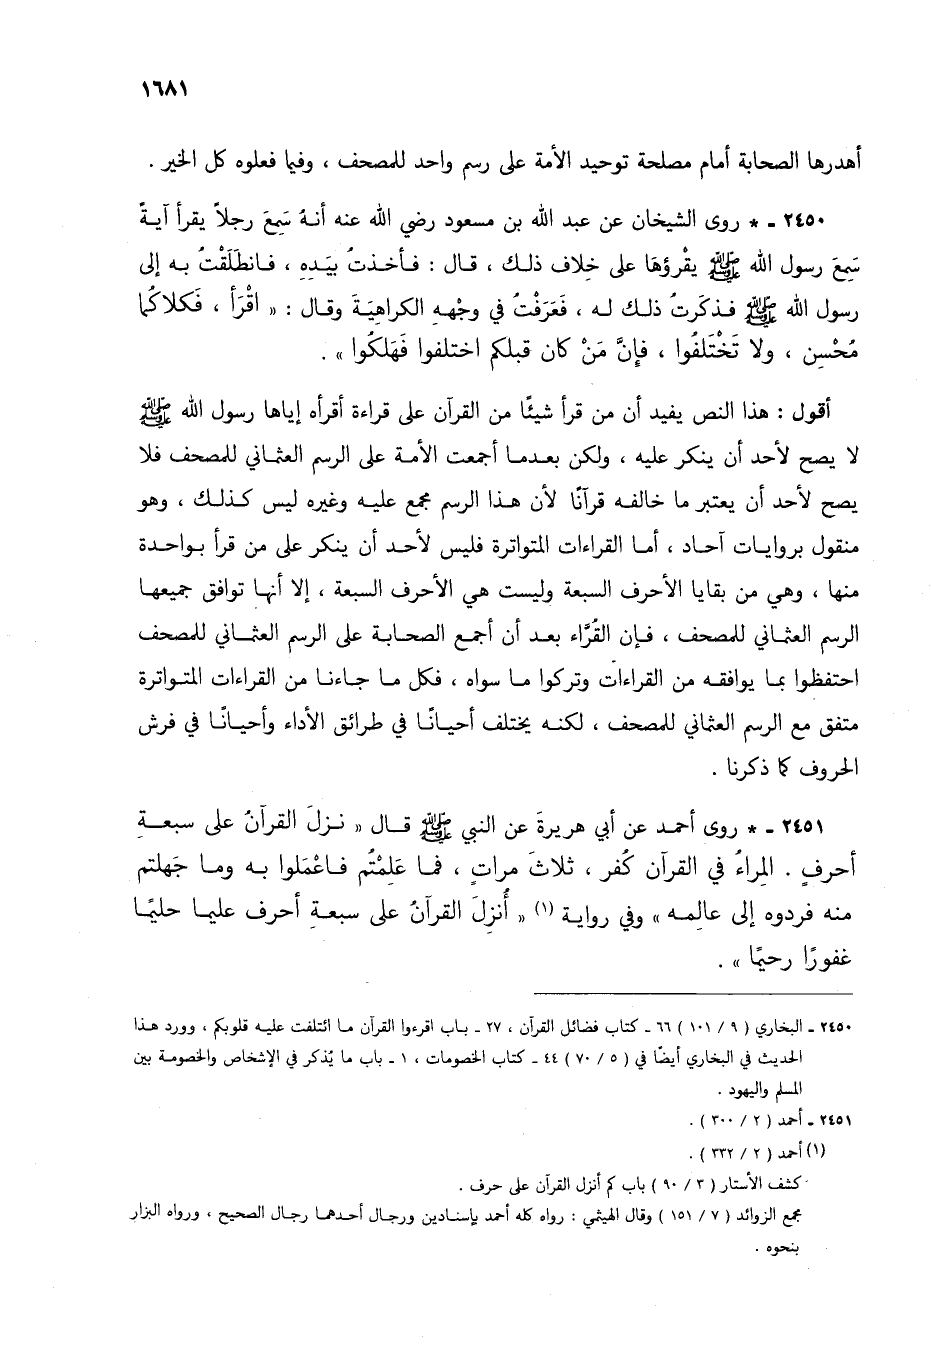 ١٦٨١
أهدرها الصحابة أمام مصلحة توحيد الأمة على رسم واحد للمصحف ، وفيما فعلوه كل الخير .
٢٤٥٠ ـ * روى الشيخان عن عبد الله بن مسعود رضي الله عنه أنهُ سَمِعَ رجلاً يقرأ آيةً
سَمِعَ رسول الله ﷺ يقْرؤهَا على خلاف ذلك ، قال : فأخذتُ بيَدهِ ، فانطَلَقْتُ به إلى
رسول الله ﷺ فذكَرتُ ذلك له ، فَعَرَفْتُ في وجْههِ الكراهيَةَ وقال : « اقْرَأ ، فَكلاكُما
مُحْسِن ، ولا تَخْتَلفُوا ، فإنَّ مَنْ كان قبلكم اختلفوا فَهَلكُوا » .
أقول : هذا النص يفيد أن من قرأ شيئًا من القرآن على قراءة أقرأه إياها رسول الله ﷺ
لا يصح لأحد أن ينكر عليه ، ولكن بعدما أجمعت الأمة على الرسم العثماني للمصحف فلا
يصح لأحد أن يعتبر ما خالفه قرآنًا لأن هذا الرسم مجمع عليه وغيره ليس كذلك ، وهو
منقول بروايات آحاد ، أما القراءات المتواترة فليس لأحد أن ينكر على من قرأ بواحدة
منها ، وهي من بقايا الأحرف السبعة وليست هي الأحرف السبعة ، إلا أنها توافق جميعها
الرسم العثماني للمصحف ، فإن القُرَّاء بعد أن أجمع الصحابة على الرسم العثماني للمصحف
احتفظوا بما يوافقه من القراءات وتركوا ما سواه ، فكل ما جاءنا من القراءات المتواترة
متفق مع الرسم العثماني للمصحف ، لكنه يختلف أحيانًا في طرائق الأداء وأحيانًا في فرش
الحروف كما ذكرنا .
٢٤٥١ ـ * روى أحمد عن أبي هريرةَ عن النبي ﷺ قال « نزلَ القرآنُ على سبعةِ
أحرفٍ . المِراءُ في القرآن كُفر ، ثلاثَ مراتٍ ، فما عَلِمْتُم فاعْمَلوا به وما جَهلتم
منه فردوه إلى عالِمه » وفي رواية (١) « أُنزلَ القرآنُ على سبعةِ أحرف عليما حليمًا
غفورًا رحيمًا » .
٢٤٥٠ ـ البخاري ( ٩ / ١٠١ ) ٦٦ ـ كتاب فضائل القرآن ، ٢٧ ـ باب اقرءوا القرآن ما ائتلفت عليه قلوبكم ، وورد هذا
الحديث في البخاري أيضًا في ( ٥ / ٧٠ ) ٤٤ ـ كتاب الخصومات ، ١ ـ باب ما يُذكر في الإشخاص والخصومة بين
المسلم واليهود .
٢٤٥١ ـ أحمد ( ٢ / ٣٠٠ ) .
(١) أحمد ( ٢ / ٣٣٢ ) .
كشف الأستار ( ٣ / ٩٠ ) باب كم أنزل القرآن على حرف .
مجمع الزوائد ( ٧ / ١٥١ ) وقال الهيثمي : رواه كله أحمد بإسنادين ورجال أحدهما رجال الصحيح ، ورواه البزار
بنحوه .